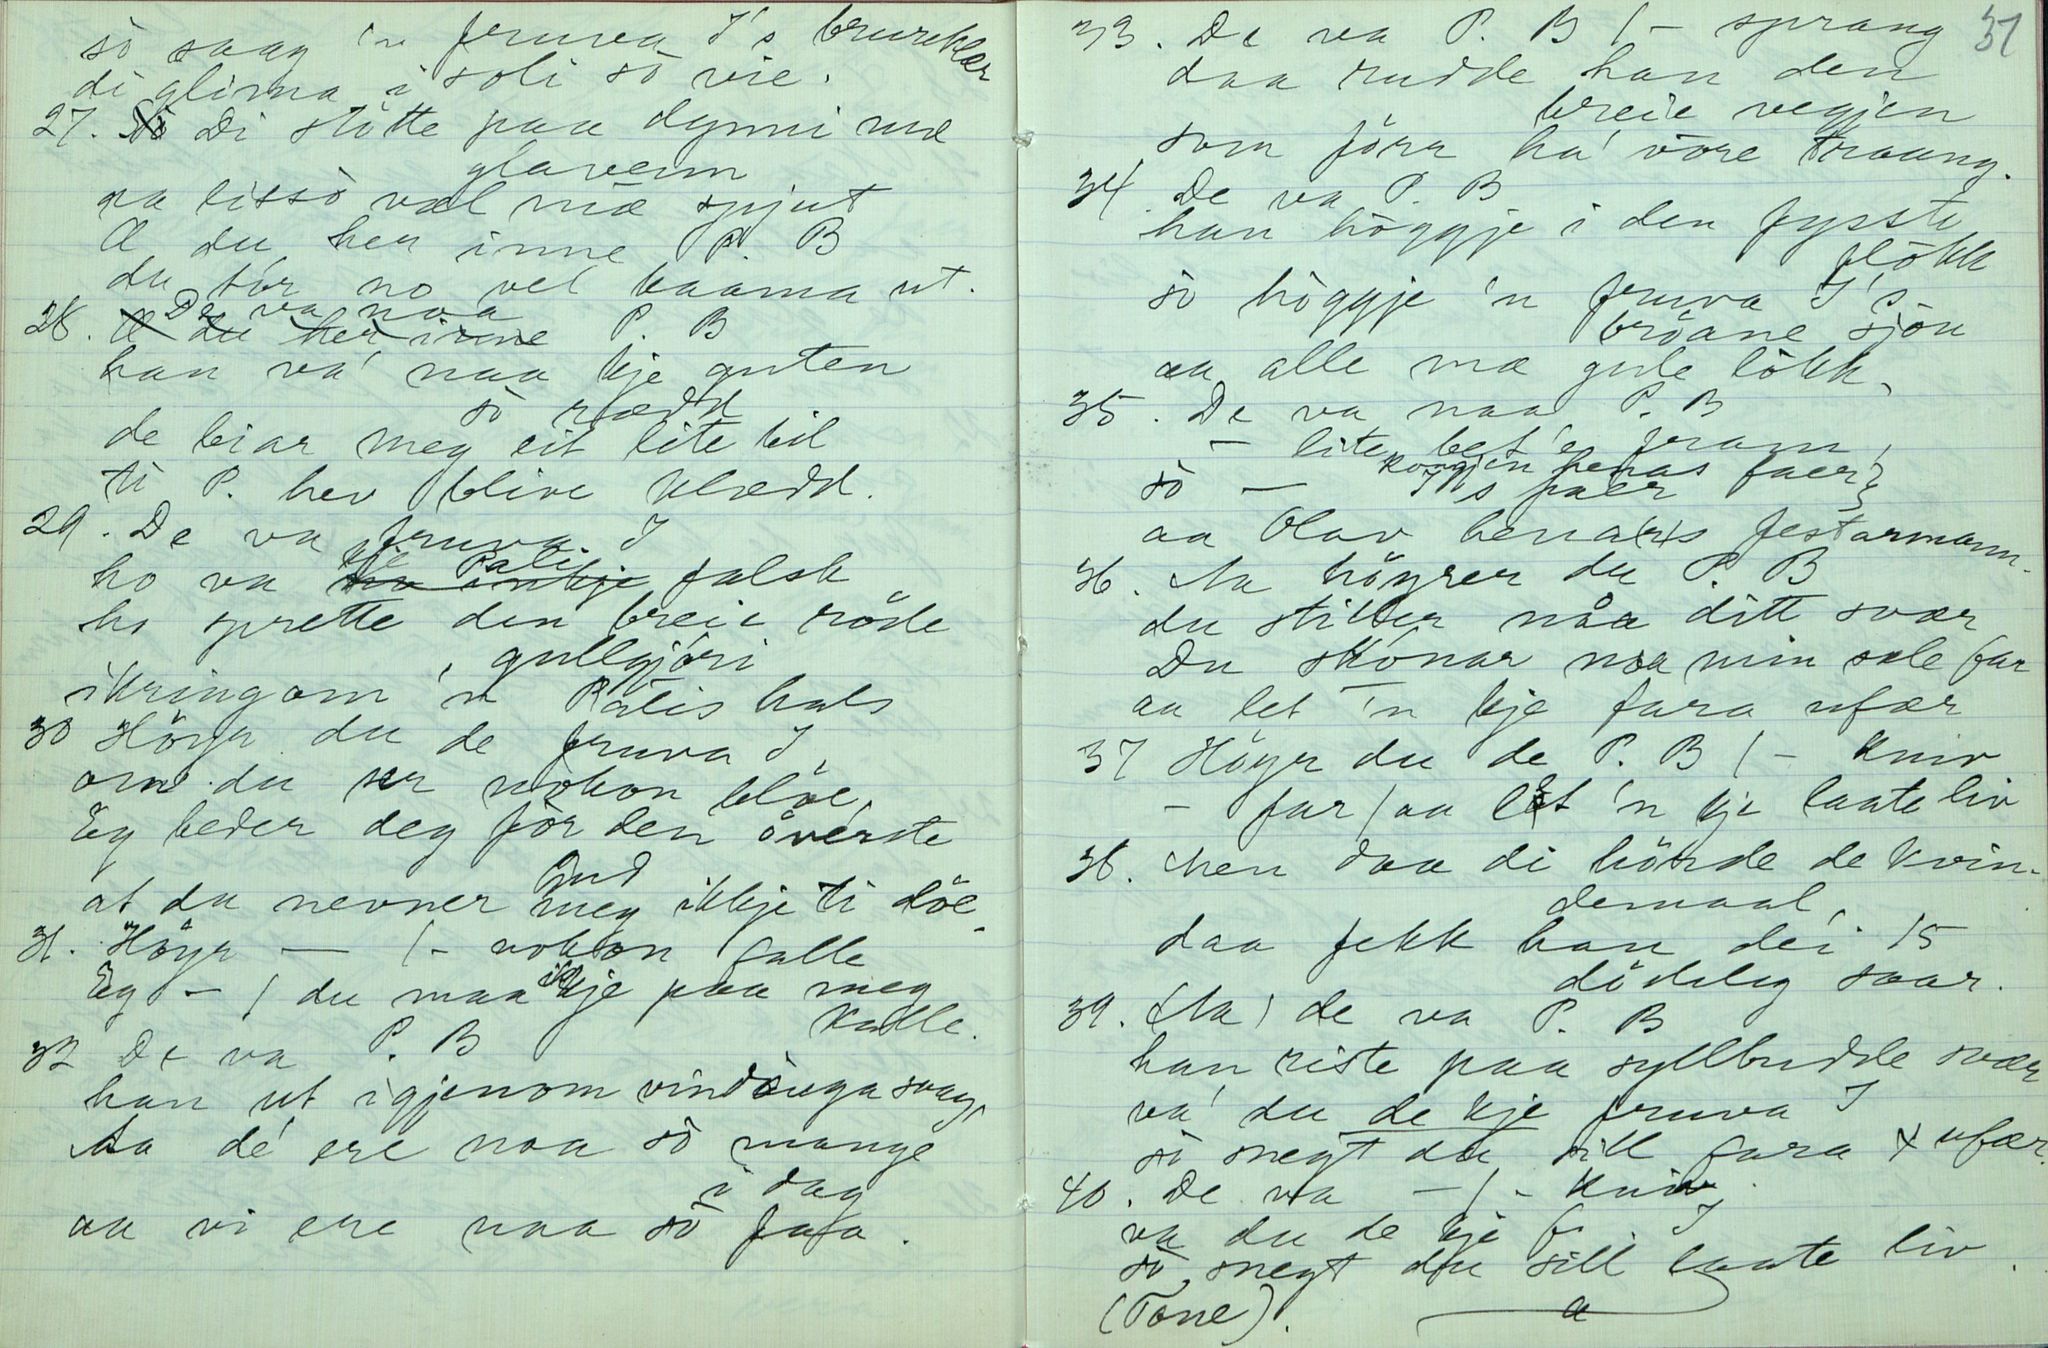 sò saag 'n fruva I's brureklær
di glima i soli sò vie.
27. Di stötte paa dynni mæ
glaveim
aa lissò væl mæ spjut
Æ du her inne P. B
du tör no vel kaama ut.
28. De va naa P. B
han va' naa kje guten
sò rædd
de biar meg eit lite bil
ti P. hev blive klædd.
29. De va fruva I
ho va kje Pali falsk
ho sprette den breie röde
gullgjöri
ikringom 'n Palis hals
30 Höyr du de fruva I
om du ser nokon blöe,
Eg beder deg för den överste
Gud
at du nevner meg ikkje ti döe
31. Höyr — /- nokon falle
Eg - / du maa ikkje paa meg
kalle.
32 De va P. B
han ut igjenom vindauga svag,
Aa dé ere naa sò mange
i dag
aa vi ere naa sò faa.
37
33. De va P. B /- sprang
daa rudde han den
breie vegjen
som förr ha' vöre traang.
34. De va P. B
han höggje i den fysste
flökk
sò höggje 'n fruva I's
bröane sjau
aa alle mæ gule lökk.
35. De va naa P. B
- lite bet'er fram,
sò — kongjen henas faer }
I's faer }
aa Olav hena(r)s festarmann.
36. Aa höyrer du P. B
du stiller nåa ditt svær
Du skónar naa min sæle far
aa let 'n kje fara ufær
37 Höyr du de P. B /- kniv
- far / aa let 'n kje laate liv
38. Men daa di hörde de kvin-
demaal,
daa fekk han dei 15
dödeleg saar.
39. (Aa) de va P. B
han riste paa syllbudde svær
va' du de kje fruva I
sò snegt du sill fara ufær.
40. De va - /- kniv,
va du de kje f. I
sò snegt du sill laate liv.
(Tone).